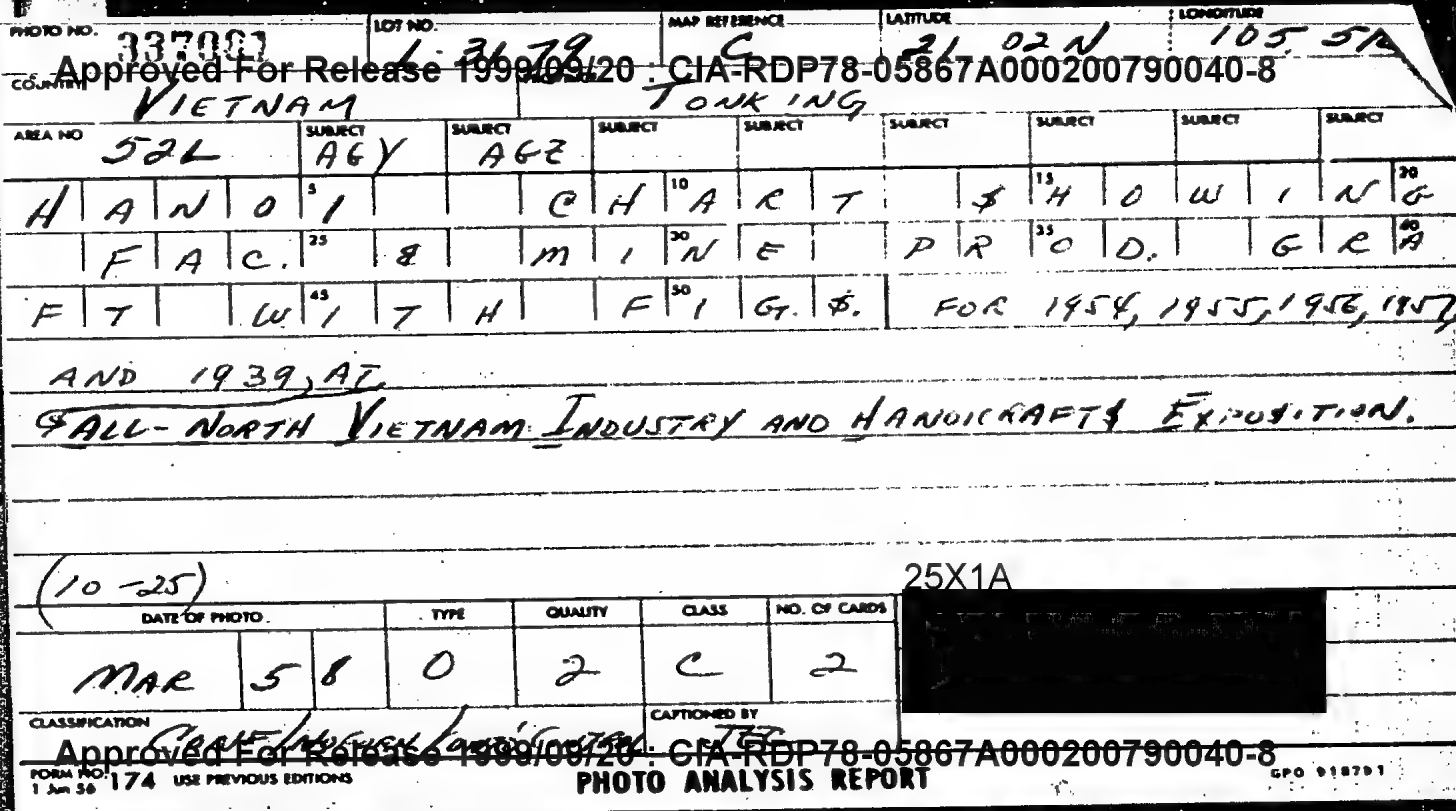 PHOTO NO. 337081 LOT NO. L-3179 MAP REFERENCE C LATITUDE 21 02N LONGITUDE 105.
Approved For Release 1999/09/20 : CIA-RDP78-05867A000200790040-8
COUNTRY VIETNAM TONKING
AREA NO 52L SUBJECT AGY SUBJECT AGZ SUBJECT SUBJECT SUBJECT SUBJECT SUBJECT SUBJECT
HANOI CHART $HOWING
FAC. & MINE PROD. GRA
FT WITH FIG$. FOR 1954, 1955, 1956, 1957,
AND 1939, AT
$ALL-NORTH VIETNAM INDUSTRY AND HANDICRAFT$ EXPOSITION.
(10-25)
25X1A
DATE OF PHOTO TYPE QUALITY CLASS NO. OF CARDS
MAR 58 O 2 C 2
CLASSIFICATION CAPTIONED BY
Approved For Release 1999/09/20 : CIA-RDP78-05867A000200790040-8
FORM NO. 174 USE PREVIOUS EDITIONS PHOTO ANALYSIS REPORT GPO 918791
1 Jun 56